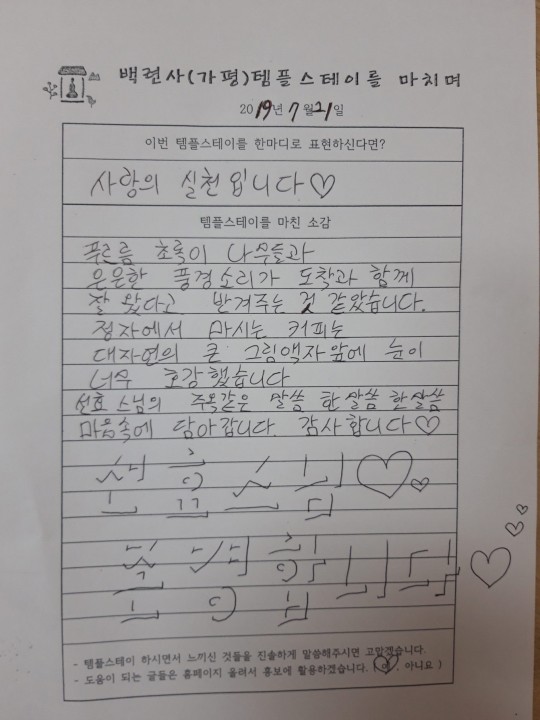 백련사(가평)템플스테이를 마치며
2019년 7월 21일
이번 템플스테이를 한마디로 표현하신다면?
사랑의 실천입니다♡
템플스테이를 마친 소감
푸르름 초록이 나무들과
은은한 풍경소리가 도착과 함께
잘 왔다고 반겨주는 것 같았습니다.
정자에서 마시는 커피는
대자연의 큰 그림액자앞에 눈이
너무 호강했습니다
선효스님의 주옥같은 말씀 한말씀 한말씀
마음속에 담아갑니다. 감사합니다♡
선효스님♡♡
존경합니다♡♡♡
- 템플스테이 하시면서 느끼신 것들을 진솔하게 말씀해주시면 고맙겠습니다.
- 도움이 되는 글들은 홈페이지 올려서 홍보에 활용하겠습니다. ( 예 , 아니요 )